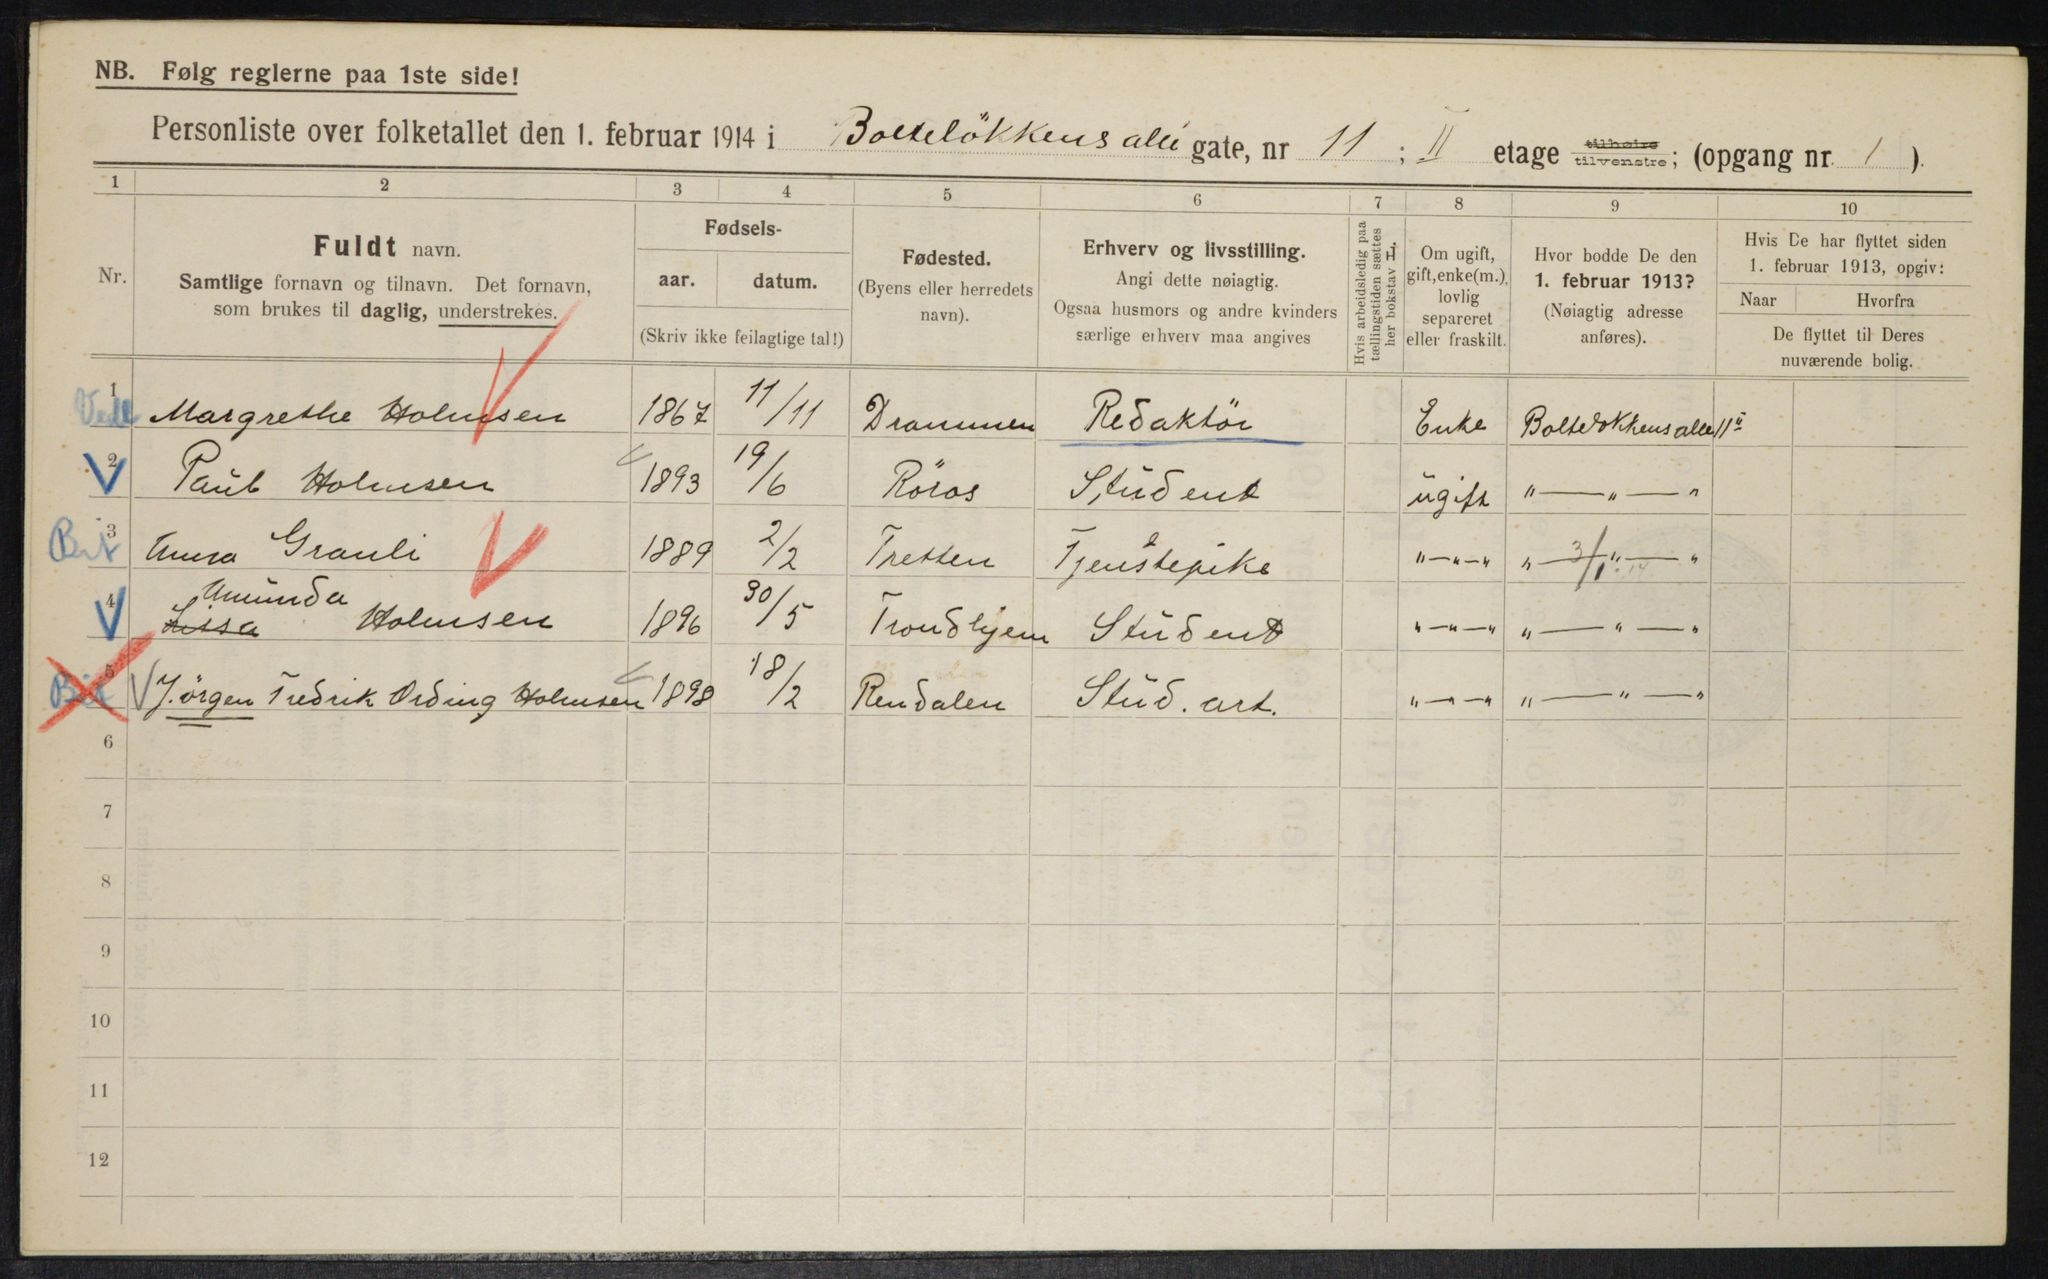 NB. Følg reglerne paa 1ste side!
Personliste over folketallet den 1. februar 1914 i Bolteløkkens allé gate, nr 11 ; II etage tilhøire tilvenstre; (opgang nr. 1 ).
1 2 3 4 5 6 7 8 9 10
Nr.
Fuldt navn.
Samtlige fornavn og tilnavn. Det fornavn,
som brukes til daglig, understrekes.
Fødsels-
aar. datum.
(Skriv ikke feilagtige tal!)
Fødested.
(Byens eller herredets
navn).
Erhverv og livsstilling.
Angi dette nøiagtig.
Ogsaa husmors og andre kvinders
særlige erhverv maa angives
Hvis arbeidsledig paa
tællingstiden sættes
her bokstav L.
Om ugift,
gift, enke(m.),
lovlig
separeret
eller fraskilt.
Hvor bodde De den
1. februar 1913?
(Nøiagtig adresse
anføres).
Hvis De har flyttet siden
1. februar 1913, opgiv:
Naar Hvorfra
De flyttet til Deres
nuværende bolig.
1 Margrethe Holmsen 1867 11/11 Drammen Redaktör Enke Bolteløkkens alle 11 II
2 Paul Holmsen 1893 19/6 Röros Student ugift " — " — "
Bit 3 Anna Grauli 1889 2/2 Tretten Tjenstepike " — " — " " — " — " 3/1 14
4 Amunda Lissa Holmsen 1896 30/5 Trondhjem Student " — " — " " — " — "
Bit 5 Jörgen Fredrik Ording Holmsen 1898 18/2 Rendalen Stud. art. " — " — " " — " — "
6
7
8
9
10
11
12